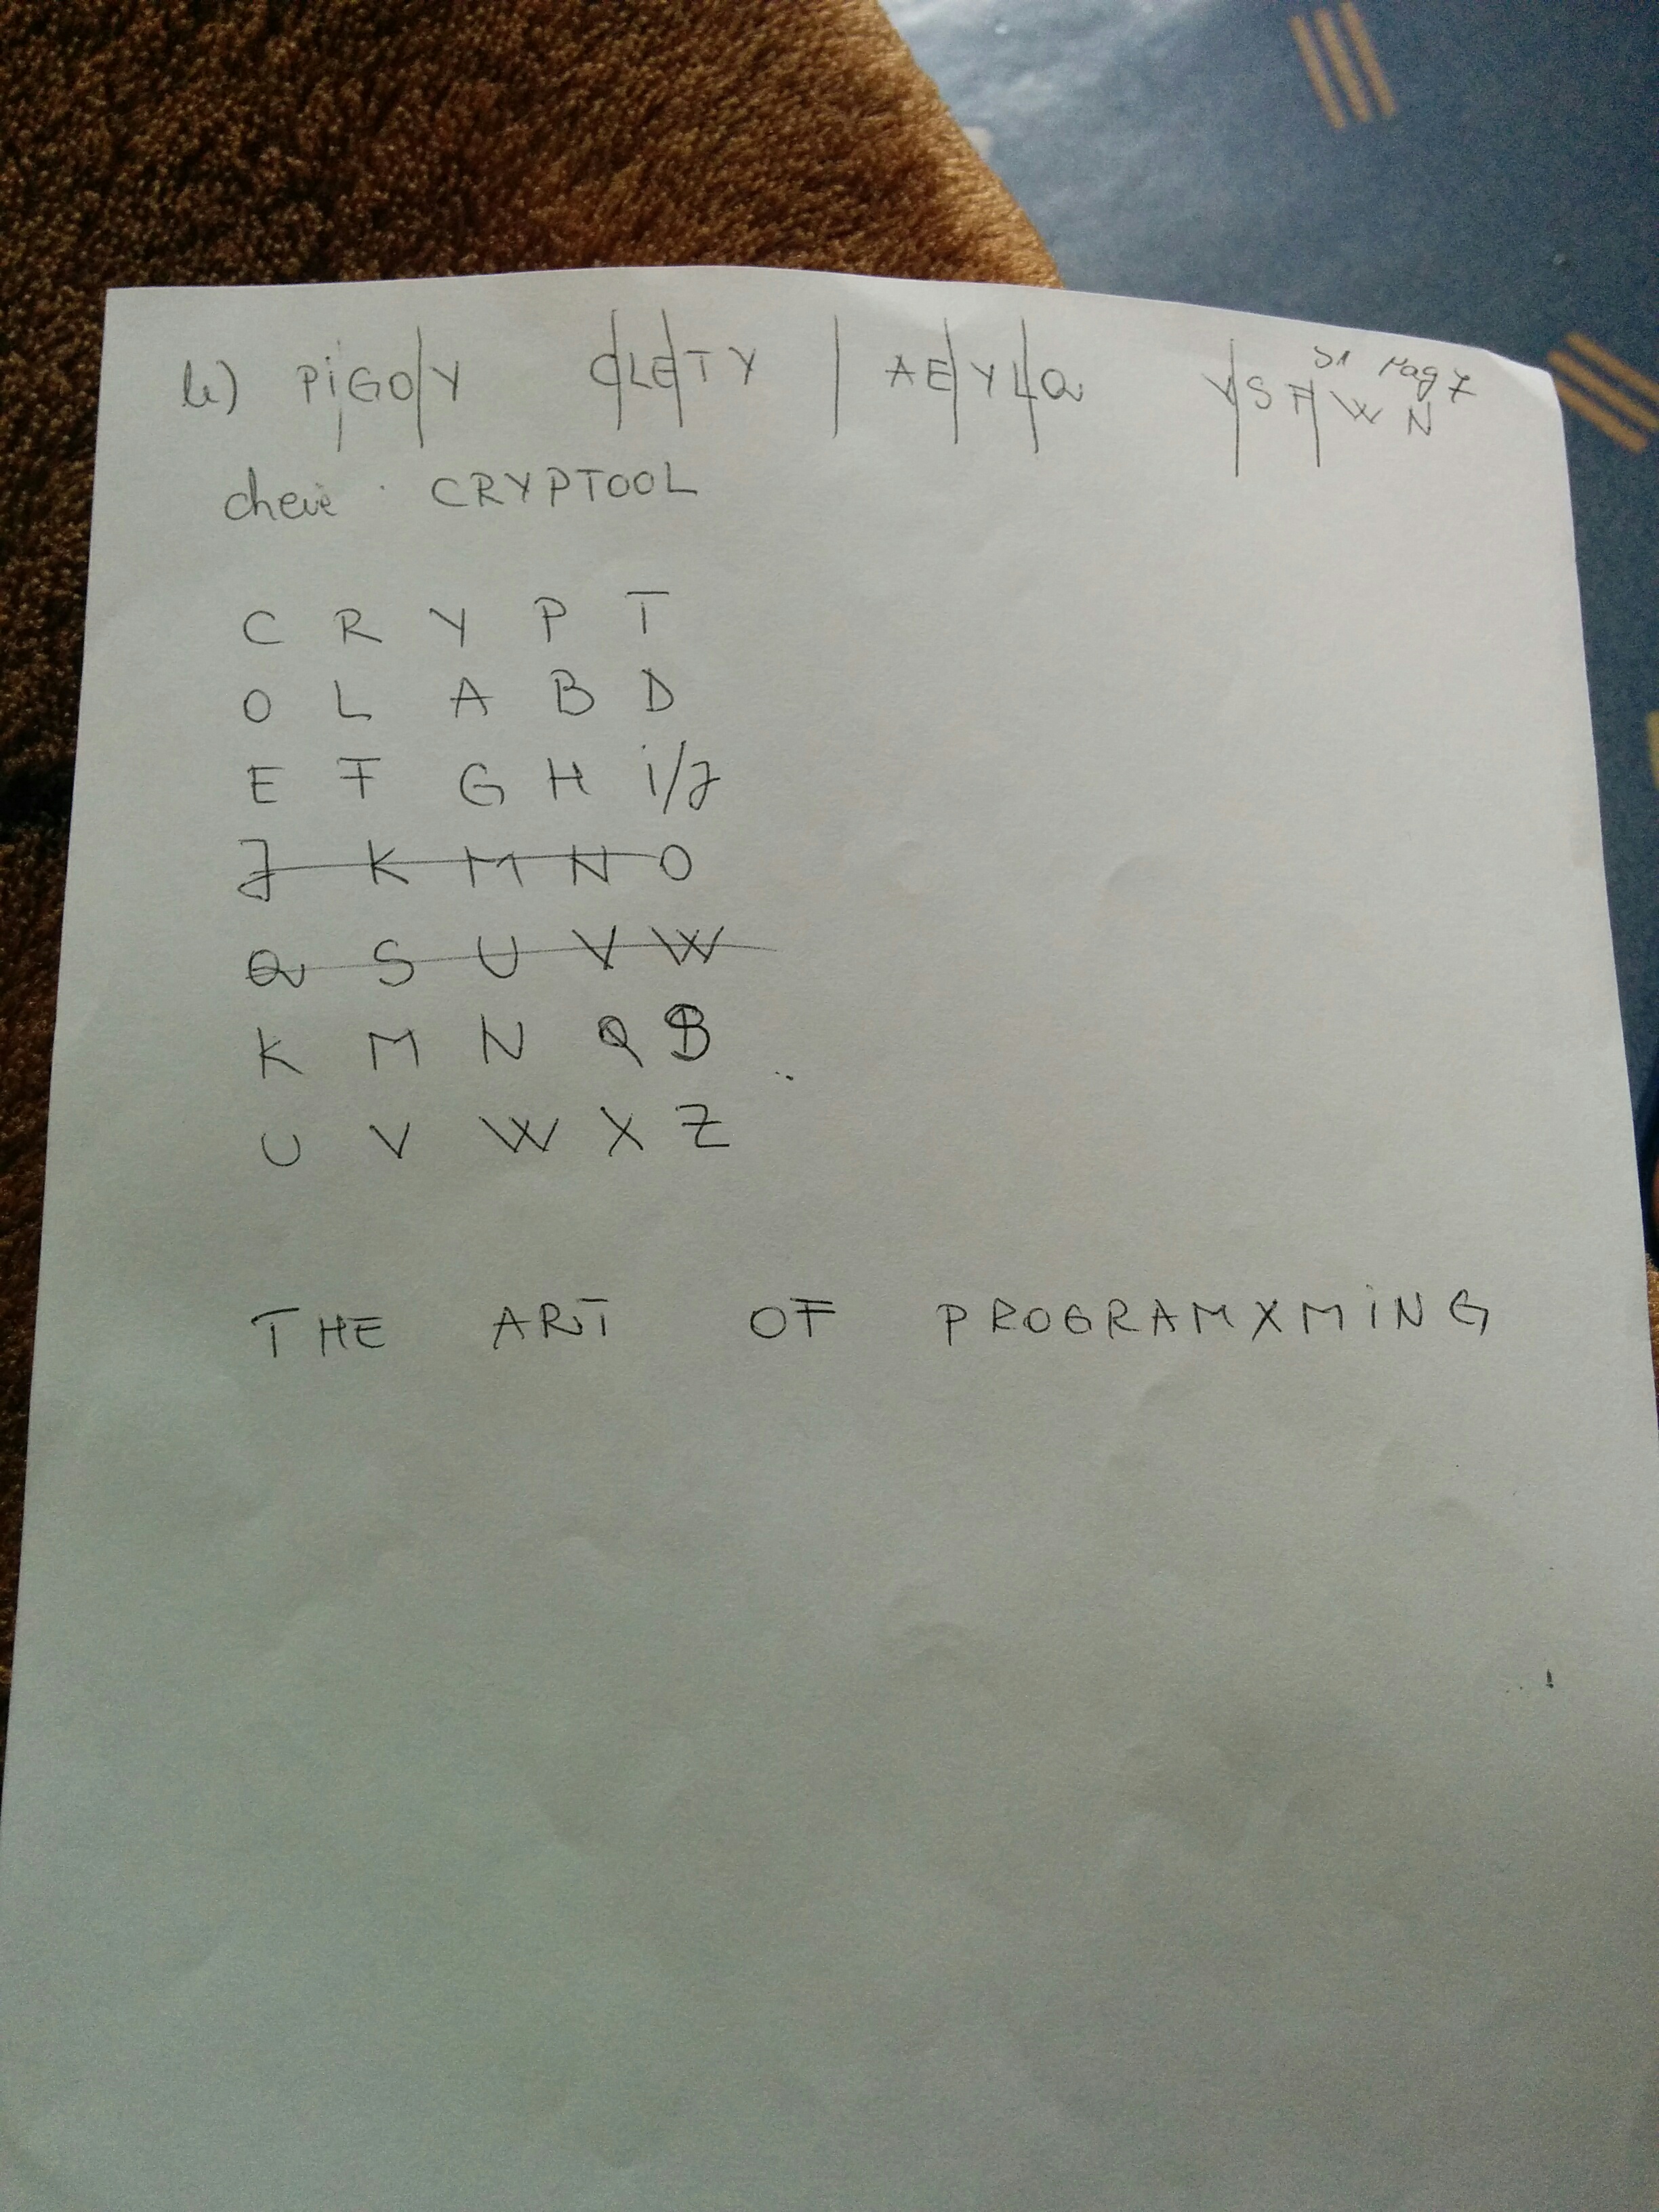 b) PiGOY CLETY AEYLQ YSMWN
S1 Pag 7
cheie CRYPTOOL
C R Y P T
O L A B D
E F G H i/J
J K M N O
Q S U V W
K M N Q S
U V W X Z
THE ART OF PROGRAMXMiNG